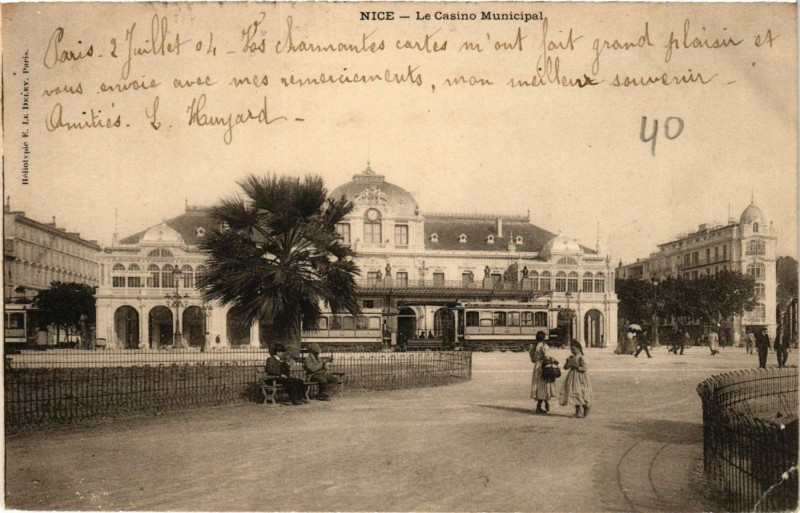 NICE — Le Casino Municipal
Paris - 2 Juillet 04 - Vos charmantes cartes m'ont fait grand plaisir et
vous envoie avec mes remerciements, mon meilleur souvenir -
Amitiés. L. Hunyard -
40
Héliotypie E. LE DELEY, Paris.